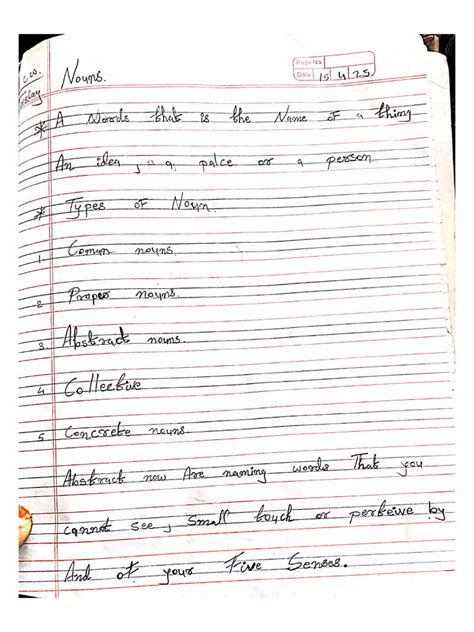 Page No.
Date 15 4 25
C.W.
Nouns.
* A Words that is the Name of a thing
An idea, a palce or a person
* Types of Noun.
1 Comun nouns.
2 Proper nouns.
3. Abstract nouns.
4 Collective
5 Concrete nouns
Abstract now Are naming words That you
cannot see, Small touch or perkeive by
And of your Five Senses.